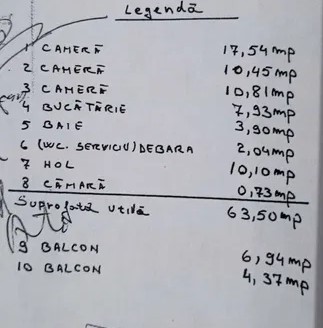 Legendă
1 CAMERĂ 17,54 mp
2 CAMERĂ 10,45 mp
3 CAMERĂ 10,81 mp
4 BUCĂTĂRIE 7,93 mp
5 BAIE 3,90 mp
6 (WC. SERVICIU) DEBARA 2,04 mp
7 HOL 10,10 mp
8 CĂMARĂ 0,73 mp
Suprafață utilă 63,50 mp
9 BALCON 6,94 mp
10 BALCON 4,37 mp